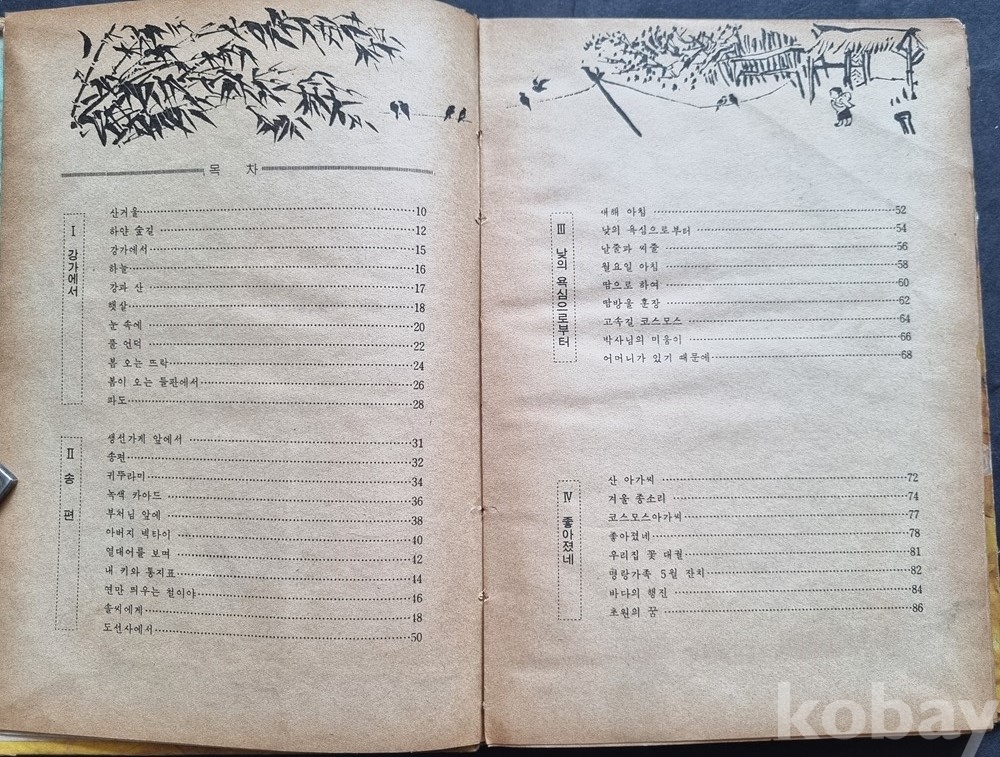 목 차
Ⅰ 강가에서
산겨울 10
하얀 숲길 12
강가에서 15
하늘 16
강과 산 17
햇살 18
눈 속에 20
풀 언덕 22
봄 오는 뜨락 24
봄이 오는 들판에서 26
파도 28
Ⅱ 송 편
생선가게 앞에서 31
송편 32
귀뚜라미 34
녹색 카아드 36
부처님 앞에 38
아버지 넥타이 40
열대어를 보며 42
내 키와 통지표 44
연만 띄우는 철이야 46
솔씨에게 48
도선사에서 50
Ⅲ 낮의 욕심으로부터
새해 아침 52
낮의 욕심으로부터 54
날줄과 씨줄 56
월요일 아침 58
땀으로 하여 60
땀방울 훈장 62
고속길 코스모스 64
박사님의 미웅이 66
어머니가 있기 때문에 68
Ⅳ 좋아졌네
산 아가씨 72
겨울 종소리 74
코스모스아가씨 77
좋아졌네 78
우리집 꽃 대궐 81
명랑가족 5월 잔치 82
바다의 행진 84
초원의 꿈 86
kobay